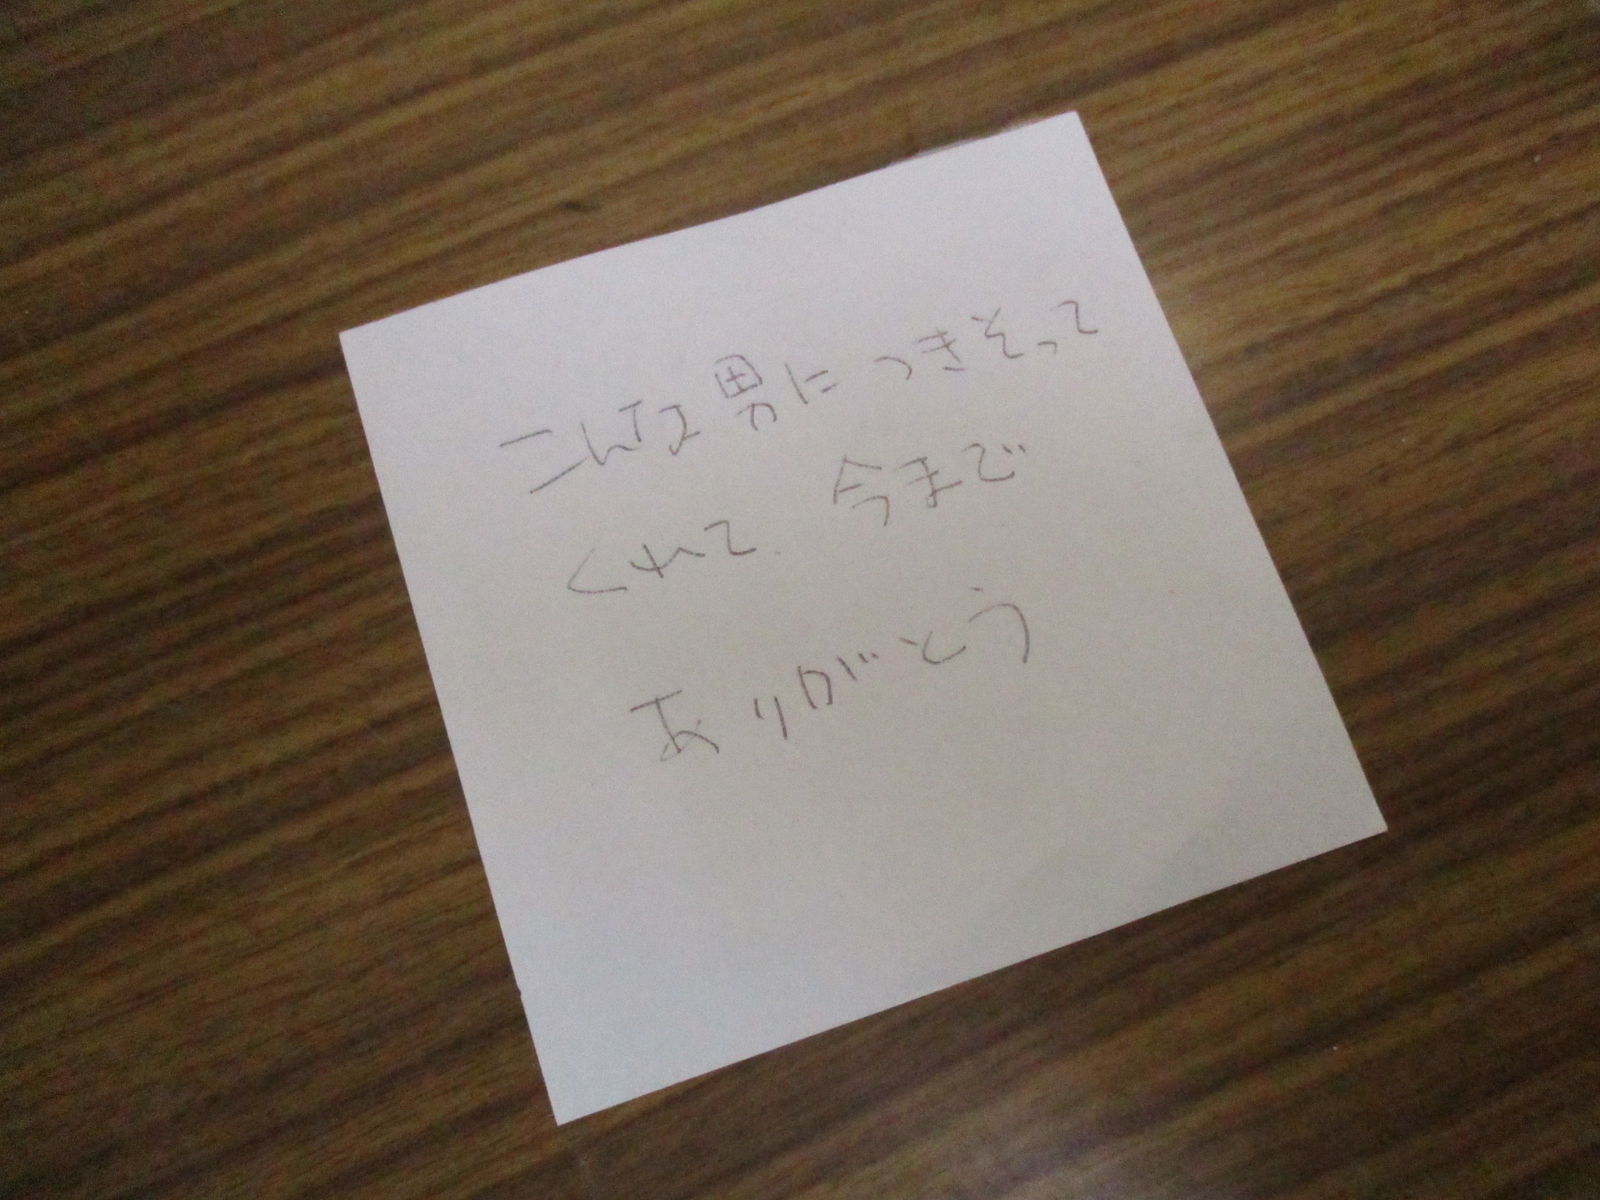 こんな男につきそって
くれて 今まで
ありがとう